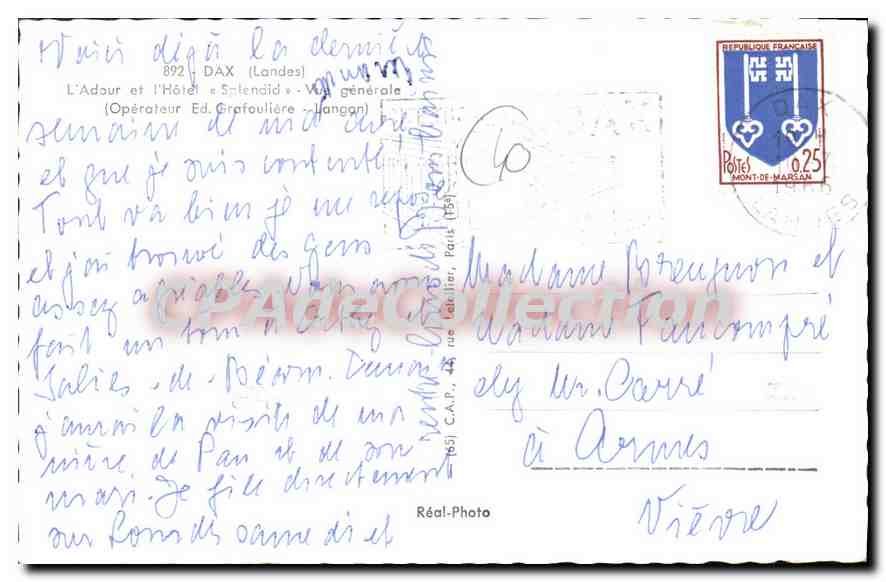 Voici déjà la dernière
892 - DAX (Landes)
L'Adour et l'Hôtel « Splendid » - Vue générale
(Opérateur Ed. Grafoulière - Langon)
semaine de ma cure
et que je suis contente
Tout va bien je me repose
et j'ai trouvé des gens
assez agréables. Nous avons
fait un tour à et
Salies-de-Béarn.
j'aurai la visite de ma
nièce de Pau et de son
mari. Je file directement
sur Lourdes samedi et
(65) C.A.P., 44, rue Letellier, Paris (15e)
Réal-Photo
CPAdeCollection
40
REPUBLIQUE FRANÇAISE
POSTES 0,25
MONT-DE-MARSAN
DAX
1966
LANDES
Madame et
Madame Faucompré
chez Mr. Carré
à Armes
Nièvre